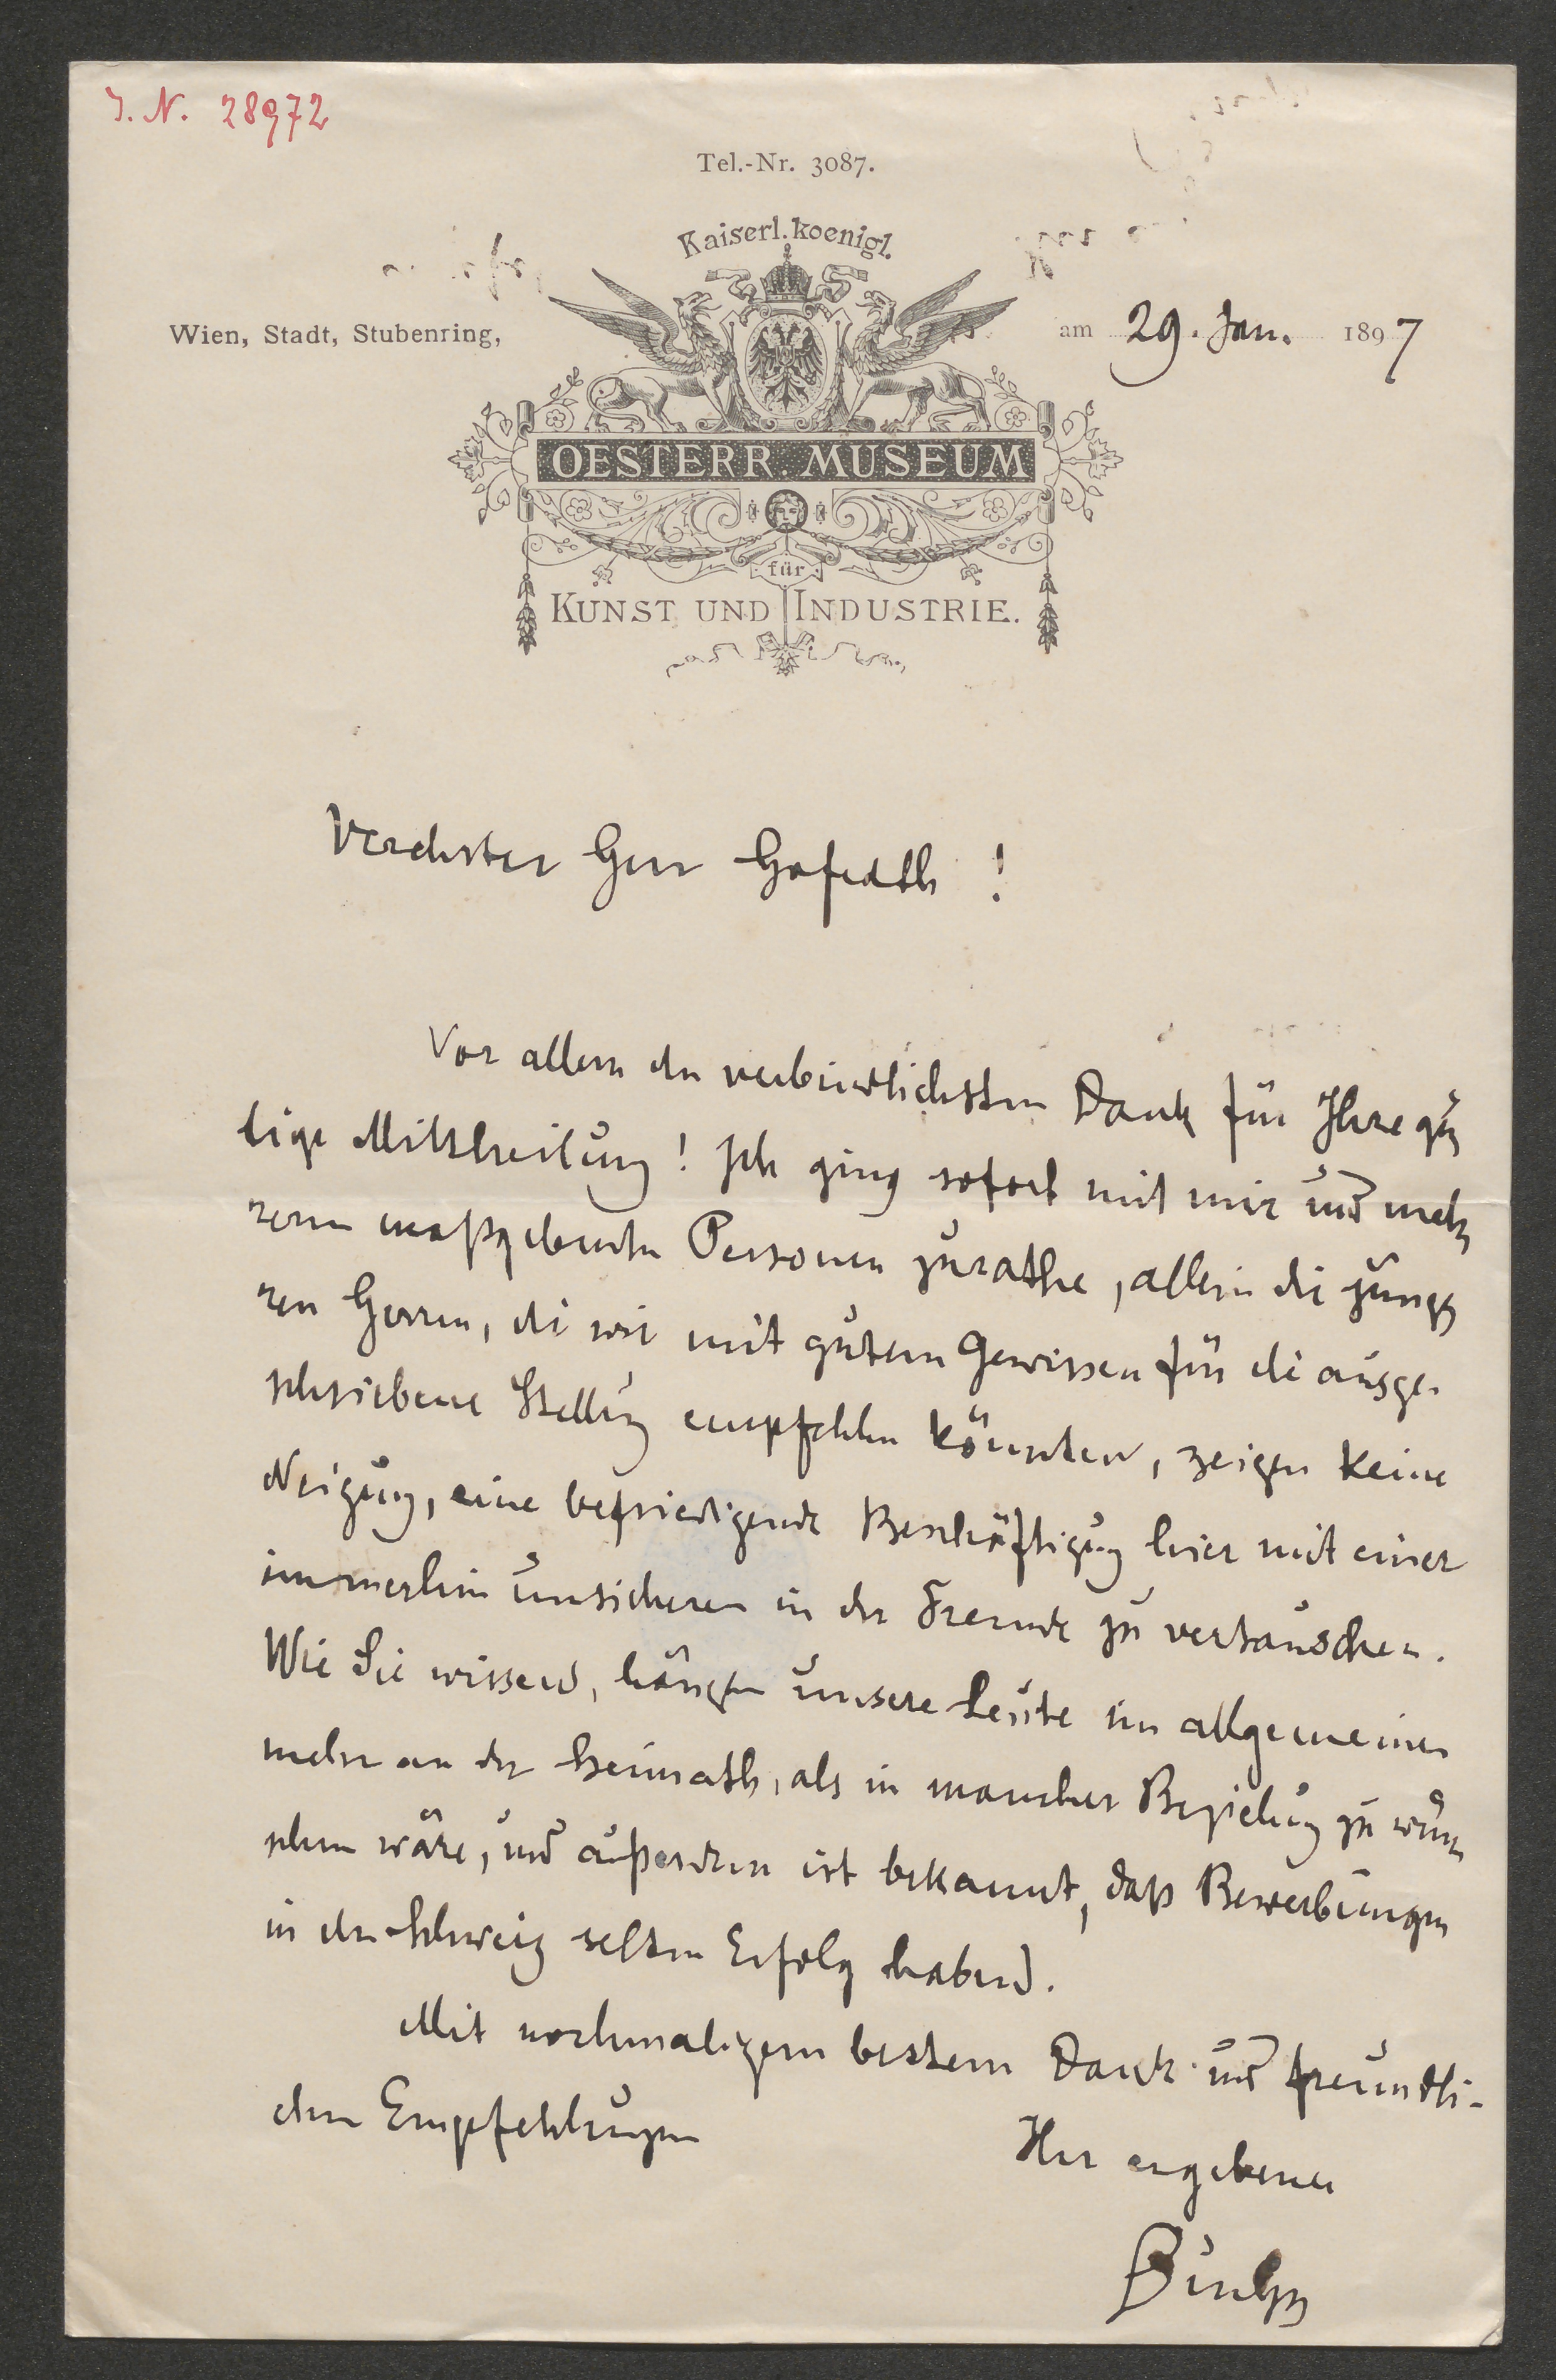 J. N. 28972
Tel.-Nr. 3087.
Kaiserl. koenigl.
Wien, Stadt, Stubenring,
am 29. Jan. 1897
OESTERR. MUSEUM
für
KUNST UND INDUSTRIE.
Verehrter Herr Hofrath!
Vor allem den verbindlichsten Dank für Ihre gü-
tige Mittheilung! Ich ging sofort mit mir und meh-
reren maßgebenden Personen zurathe, allein die jünge-
ren Herren, die wir mit gutem Gewissen für die ausge-
schriebene Stellung empfehlen könnten, zeigen keine
Neigung, eine befriedigende Beschäftigung hier mit einer
immerhin unsicheren in der Fremde zu vertauschen.
Wie Sie wissen, hängen unsere Leute im allgemeinen
mehr an der Heimath, als in mancher Beziehung zu wün-
schen wäre, und außerdem ist bekannt, daß Bewerbungen
in der Schweiz selten Erfolg haben.
Mit nochmaligem bestem Dank und freundli-
chen Empfehlungen
Ihr ergebener